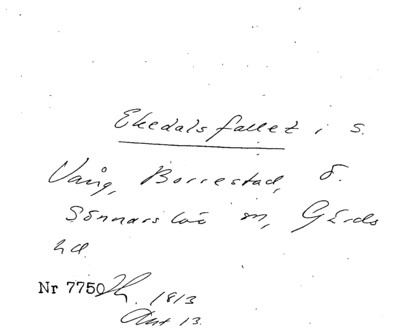 Ekedalsfallet i s.
Vång, Borrestad, ö.
Sönnarslöv sn, Gärds
hd.
Nr 7750
1813